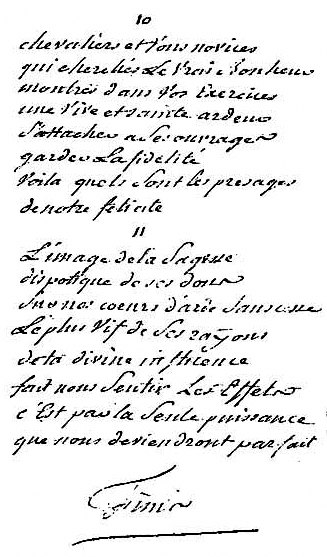 10
chevaliers et vous novices
qui cherchés Le Vrai bonheur
montrés dans vos Exercices
une vive et sainte ardeur
S'attacher a Ses ouvrages
garder La fidelité
voila quels sont les presages
de notre felicité
11
L'image de la Sagesse
dispotique de ses dons
sur nos coeurs darde sans cesse
Le plus vif de Ses rayons
de ta divine influence
fait nous Sentir Les Effets
c'Est par la Seule puissance
que nous deviendront parfait
Finis